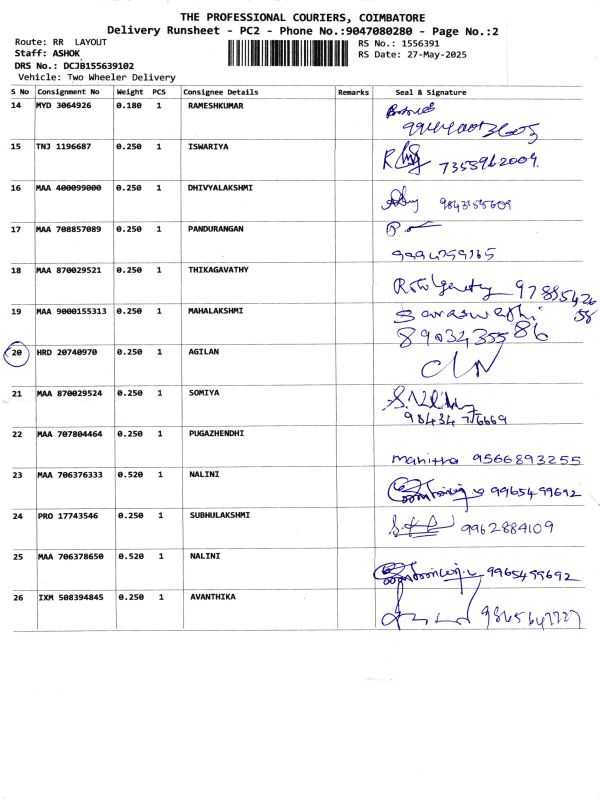 THE PROFESSIONAL COURIERS, COIMBATORE
Delivery Runsheet - PC2 - Phone No.:9047080280 - Page No.:2
Route: RR LAYOUT RS No.: 1556391
Staff: ASHOK RS Date: 27-May-2025
DRS No.: DCJB155639102
Vehicle: Two Wheeler Delivery
S No Consignment No Weight PCS Consignee Details Remarks Seal & Signature
14 MYD 3064926 0.180 1 RAMESHKUMAR
15 TNJ 1196687 0.250 1 ISWARIYA
7355962009.
16 MAA 400099000 0.250 1 DHIVYALAKSHMI
9843355609
17 MAA 708857089 0.250 1 PANDURANGAN
9994259165
18 MAA 870029521 0.250 1 THIKAGAVATHY
19 MAA 9000155313 0.250 1 MAHALAKSHMI
Saraswathi
8903435586
20 HRD 20740970 0.250 1 AGILAN
21 MAA 870029524 0.250 1 SOMIYA
22 MAA 707804464 0.250 1 PUGAZHENDHI
Manitha 9566893255
23 MAA 706376333 0.520 1 NALINI
9965499692
24 PRO 17743546 0.250 1 SUBHULAKSHMI
9962884109
25 MAA 706378650 0.520 1 NALINI
9965499692
26 IXM 508394845 0.250 1 AVANTHIKA